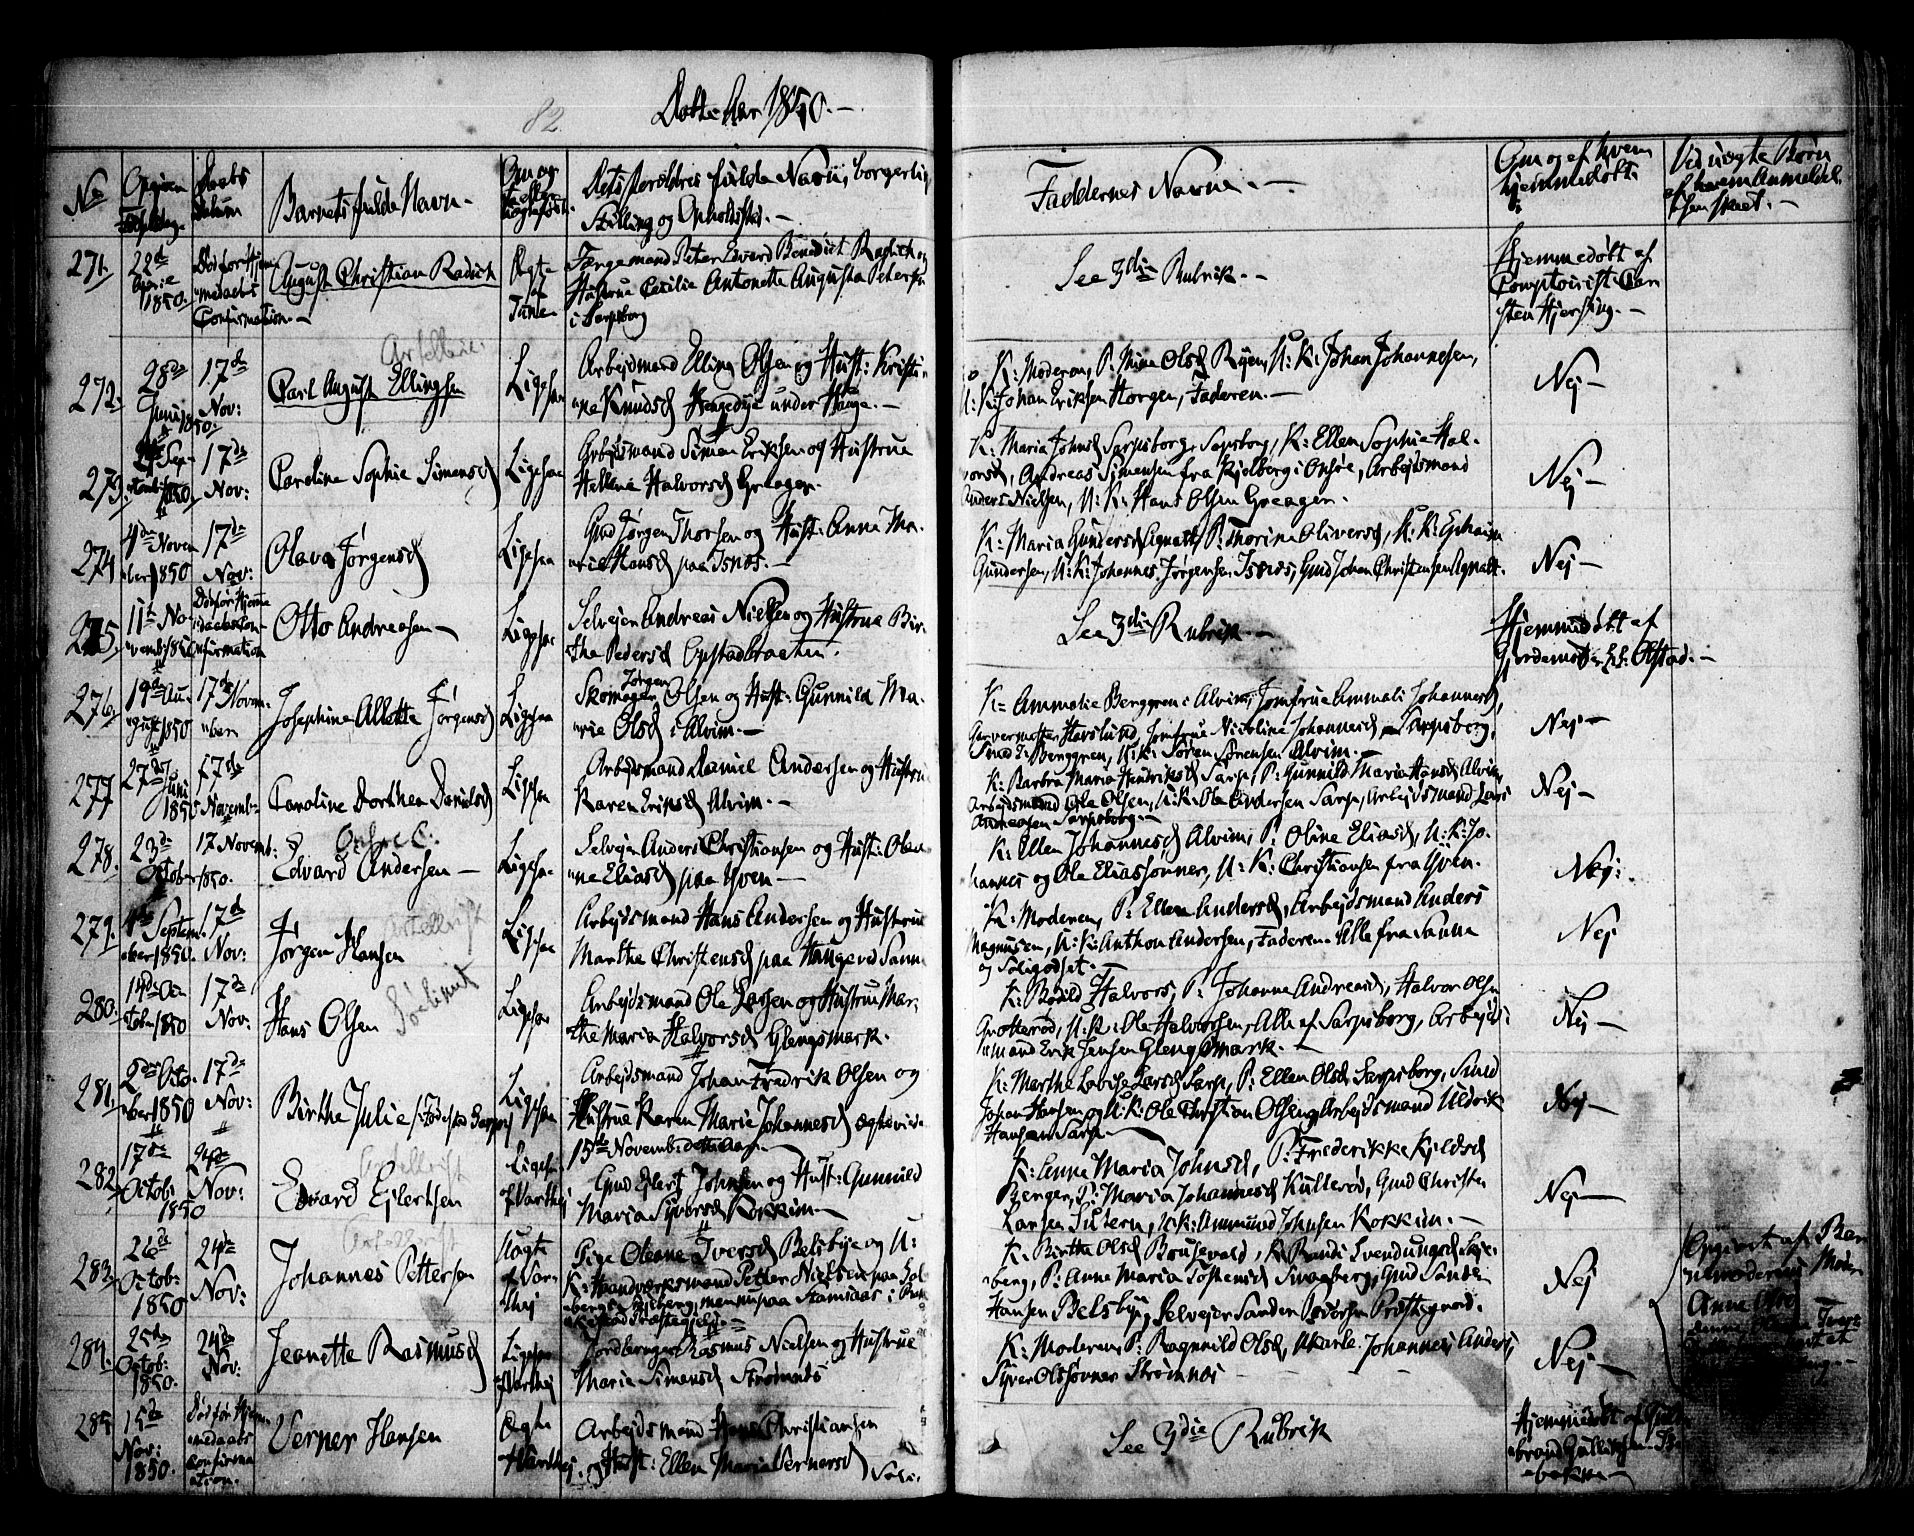 82.
Døbte Aar 1850.-
No
Opgiven
Fødselsdag
Daabs
Datum
Barnets fulde Navn.-
Om og
Dets Forældres fulde Navn, borgerlig
Stilling og Opholdsted.-
Faddernes Navne.-
Om og af hvem
hjemmedøbt
Ved uægte Børn
af hvem Anmeldel-
sen skeet.-
271.
22d
1850.
Død før Hjem-
medaabs
Confirmation.-
August Christian Radich
Ægte
af
Tune
Færgemand Peter Edvard Benedict Radich og
Hustrue Cecilie Antonette Augusta Peters
i Sarpsborg
See 3die Rubrik.-
Hjemmedøbt af
Comptoirist Car
sten Hjersing.-
272.
28de
Junij 1850.
17de
Nov:
Carl August Ellingsen
Ligesaa
Arbejdsmand Elling Olsen og Hust: Kristi-
ne Knudsd Hengedye under Hauge.-
K: Moderen, P: Mine Olsd Ryen, U: K: Johan Johannesen,
U: K: Johan Eriksen Horgen, Faderen.-
Nej-
273.
Sep-
tember 1850
17de
Nov:
Caroline Sophie Simensd
Ligesaa
Arbejdsmand Simen Eriksen og Hustrue
Hellene Halvorsd Greager.
K: Maria Johnsd Sarpsborg, K: Ellen Sophie Hal-
vorsd, Andreas Simensen fra Kjølberg i Onsøe, Arbejdsmand
Anders Nielsen, U: K: Hans Olsen Greager.
Nej-
274
4de Novem
ber 1850
17de
Nov:
Olava Jørgensd
Ligesaa
Gmd Jørgen Thorsen og Hust: Anne Ma-
rie Hansd paa Isnæs.-
K: Maria Gundersd Agnalt, P: Thorine Oliversd, U: K: Ephraim
Gundersen, U: K: Johannes Jørgensen Isnæs, Gmd Johan Christensen Agnalt.
Nej-
275.
11te No-
vemb: 1850
Død før Hjemme
daabs Con-
firmation
Otto Andreasen-
Ligesaa
Selvejer Andreas Nielsen og Hustrue Bir-
the Pedersd Opstadbraathen.
See 3die Rubrik.-
Hjemmedøbt af
Gjordemoder Olstad.-
276.
19de Au-
gust 1850
17de Novem-
ber
Josephine Alette Jørgensd
Ligesaa
Jørgen
Skomager Olsen og Hust: Gunnild Ma-
rie Olsd i Alvim.-
K: Ammalie Berggren i Alvim, Jomfrue Ammali Johannesd,
Garvermester Hafslund, Jomfrue Nicoline Johannesd Sarpsborg,
Smed E: Berggren, U: K: Søren Sørensen Alvim.-
Nej-
277
27de
Juni
1850
17de
Novemb:
Caroline Dorthea Danielsd
Ligesaa
Arbejdsmand Daniel Andersen og Hustrue
Karen Eriksd Alvim.-
K: Barbra Maria Hendriksd Sarp, P: Gunnild Maria Hansd Alvim,
Arbejdsmand Ole Olsen, U: K: Ole Andersen Sarp, Arbejdsmand Lars
Andreasen Sarpsborg.-
Nej-
278.
23de
October 1850.
17 Novemb:
Edvard Andersen-
Ligesaa
Selvejer Anders Christiansen og Hust: Olea-
ne Eliasd paa Yven-
K: Ellen Johannesd Alvim, P: Oline Eliasd, U: K: Jo-
hannes og Ole Eliassønner, U: K: Christiansen fra Yven.
Nej:
279.
4de Septem-
ber 1850.
17de
Nov:
Jørgen Hansen
Ligesaa
Arbejdsmand Hans Andersen og Hustrue
Marthe Christensd paa Hauge ved Sann
K: Moderen, P: Ellen Andersd, Arbejdsmand Anders
Magnusen, U: K: Anthon Andersen, Faderen. Alle fra Sanne
og Soligodset.-
Nej
280.
14de Oc-
tober 1850
17de
Nov:
Hans Olsen
Ligesaa
Arbejdsmand Ole Larsen og Hustrue Mar-
the Maria Halvorsd Glengsmark.
K: Bodild Halvors, P: Johanne Andreasd, Halvor Olsen
Grotterød, U: K: Ole Halvorsen, Alle af Sarpsborg, Arbejds-
mand Erik Jensen Glengsmark.-
Nej-
281.
2den Octo-
ber 1850
17de
Nov:
Birthe Julie
Ligesaa
Arbejdsmand Johan Fredrik Olsen og
Hustrue Karen Marie Johannesd Ægteviede
15de November dette Aar.-
K: Marthe Lovise Larsd Sarp, P: Ellen Olsd Sarpsborg, Smed
Johan Hansen og U: K: Ole Christian Olsen, Arbejdsmand Uldrik
Hansen Sarp.-
Nej-
282.
17de
Octob:
1850
24de
Nov:
Edvard Ejlertsen
Ligesaa
af Varthej
Gmd Ejlert Johnsen og Hust: Gunnild
Maria Syversd Kokkim.-
K: Lenne Maria Johnsd, P: Frederikke Kjeldsd
Berger, P: Maria Johannesd Kullerød, Gmd Christen
Larsen Sutern, U: K: Ammund Johnsen Kokkim.-
Nej-
283.
26de
Octob:
1850
24de
Nov:
Johannes Pettersen
Uægte
af Var-
thej
Pige Oleane Iversd Belsbye og U:
K: Haandverksmand Petter Nielsen paa
K: Birthe Olsd Brusevold, K: Randi Svendungsd
berg, P: Anna Maria Tostensd Snaaberg, Gmd Sander
Hansen Belsbye, Selvejer Sander Isacksen Præstegaard.
Nej
Opgivet af Bar
nemoderens Moder
284.
25de
Octob:
1850.
24de
Nov:
Jeanette Rasmusd
Ligesaa
af Varthej
Jordbruger Rasmus Nielsen og Hustrue
Maria Simensd Strømnæs
K: Moderen, P: Ragnnild Olsd, Ukarle Johannes, Anders,
Syver Olssønner Strømnæs
Nej-
285
15de
Nov:
1850.
Død før Hjem-
medaabs
Confirma
ation.
Verner Hansen
Ægte
af Varthej.
Arbejdsmand Hans Christiansen
og Hust: Ellen Maria Vernersd
See 3die Rubrik
Hjemmedøbt af Gul-
brand Gullichsen